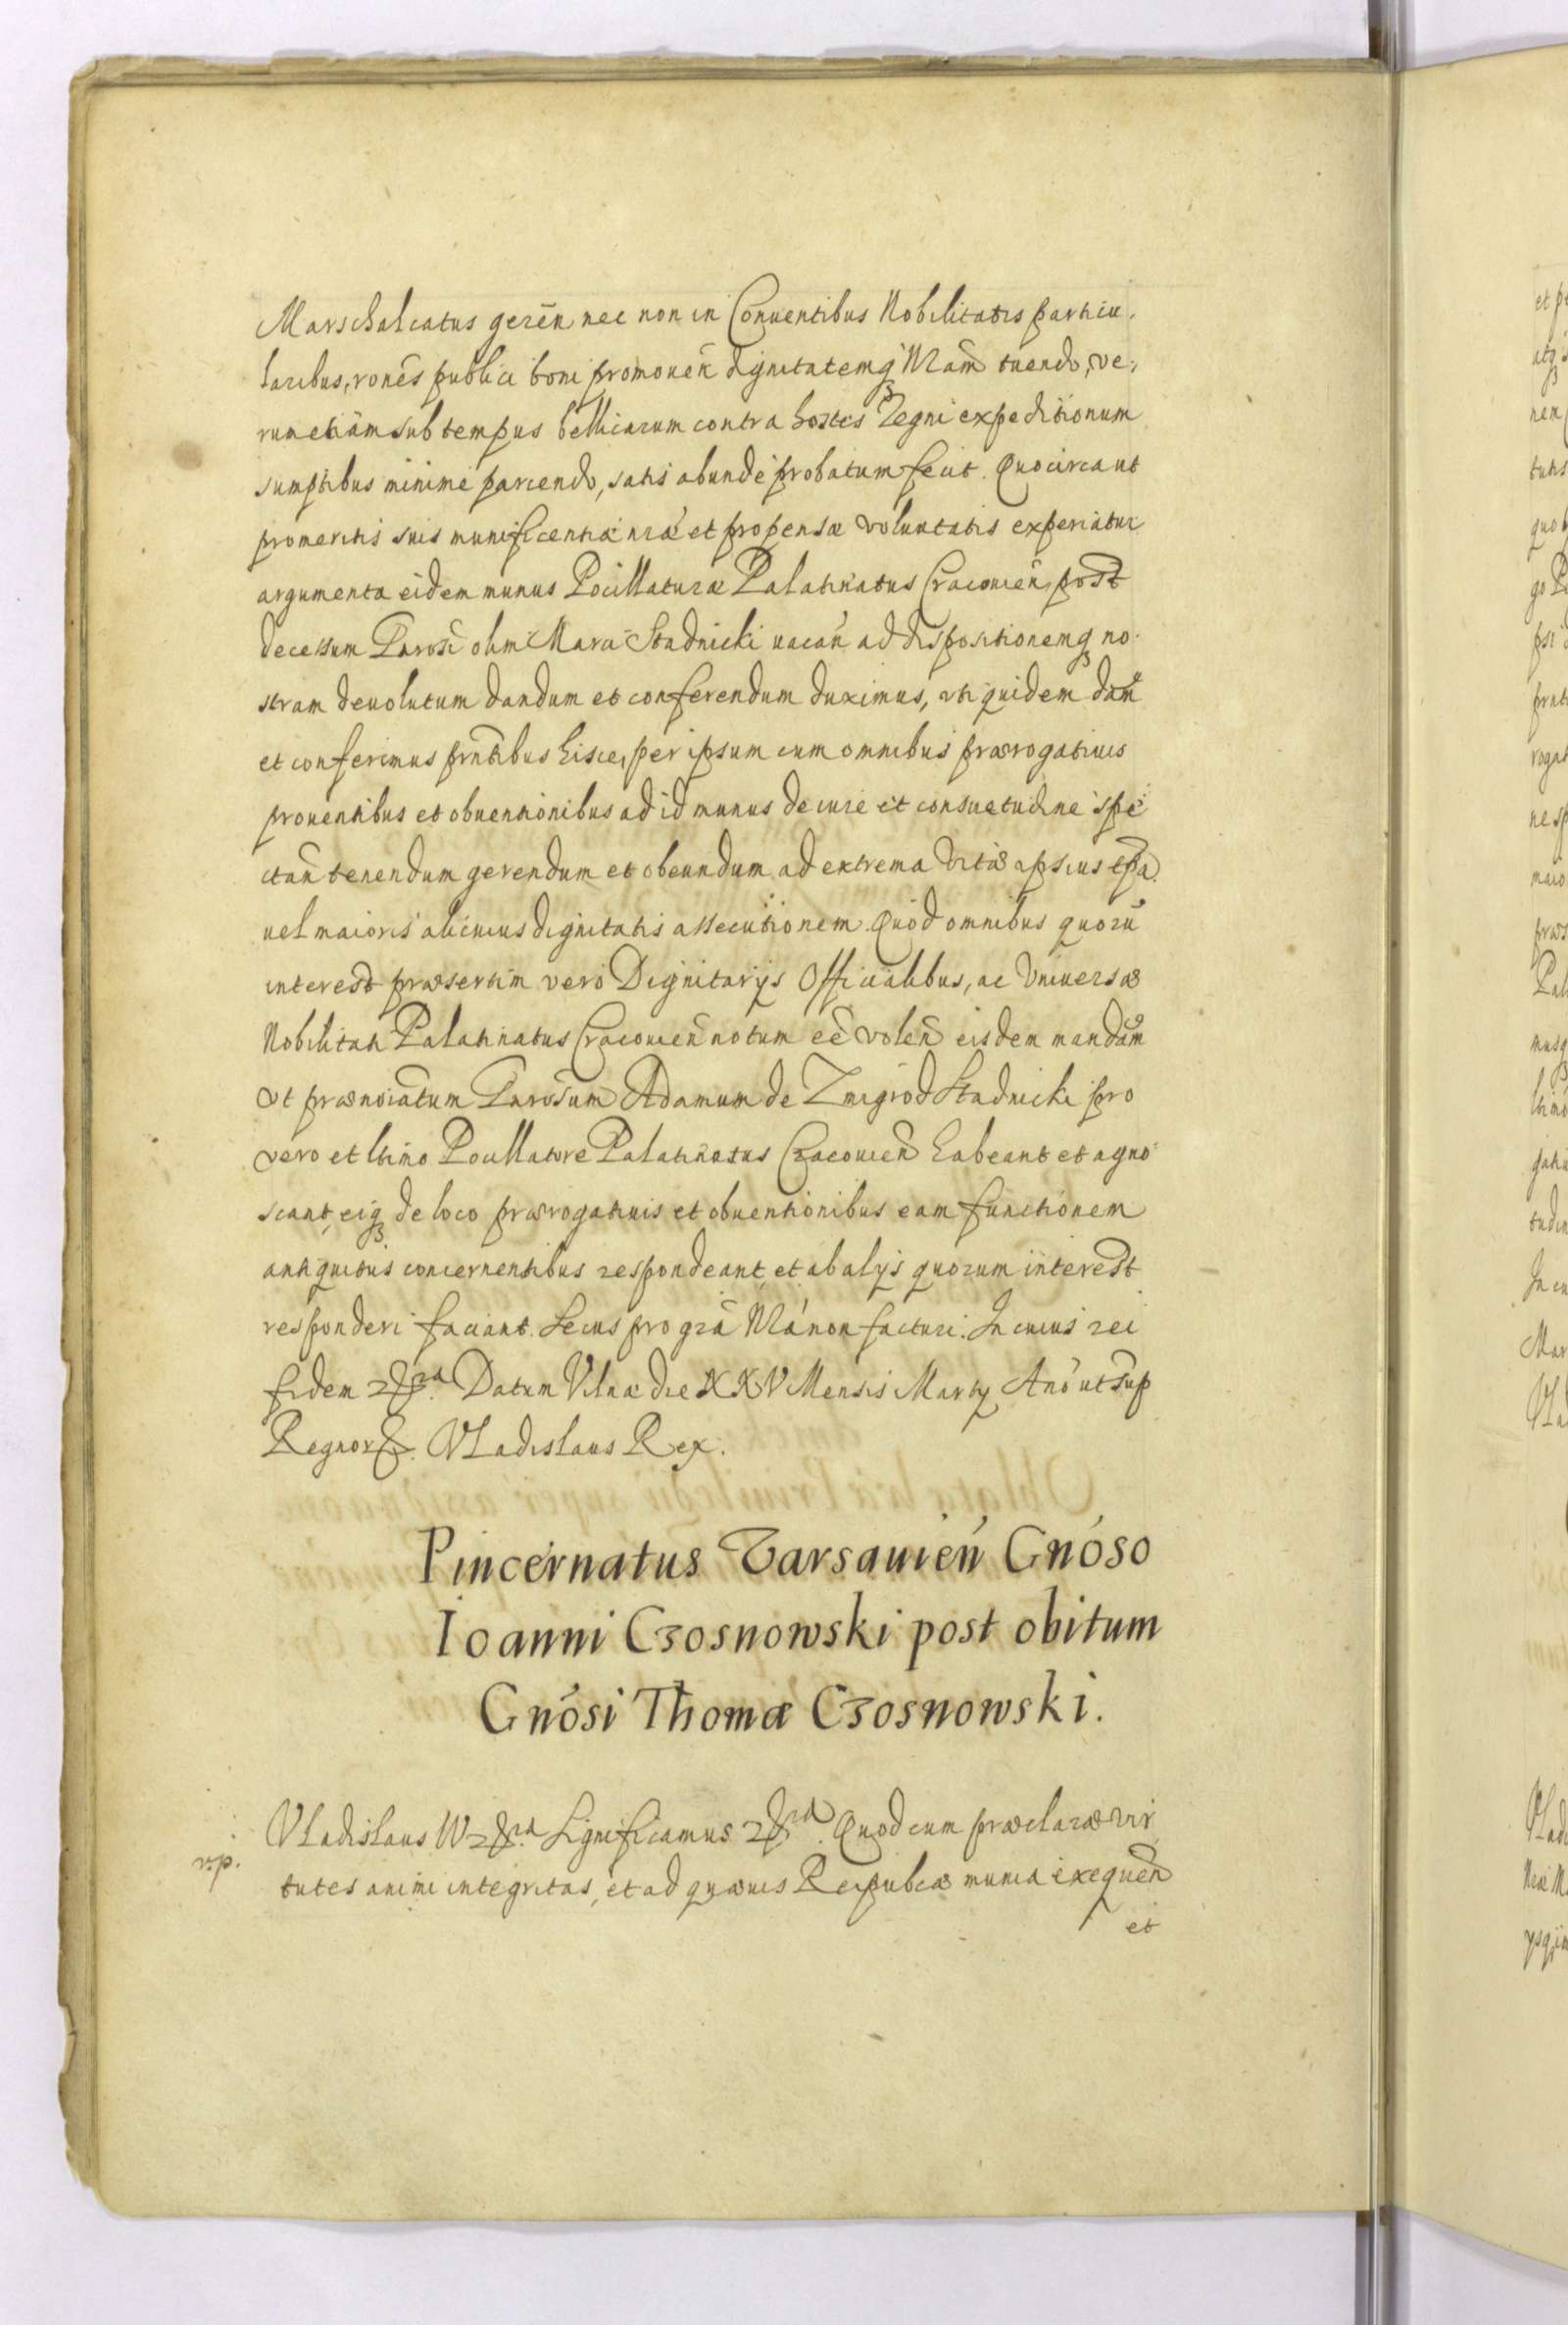 Marschalcatus gerēn nec non in Conuentibus Nobilitatis particu,
laribus, rones publici boni promouen̄ dignitatemq̃ Nram̃ tuendo, ve,
rum etiam sub tempus bellicarum contra hostes Regni expeditionum
sumptibus minime parcendo, satis abunde probatum fecit. Quocirca ut
pro meritis suis munificentiæ nræ et propensæ voluntatis experiatur
argumenta eidem munus Pocillaturæ Palatinatus Cracouien̄ post
decessum Gnrosi olim Marci Stadnicki uacan̄ ad dispositionemq̃ no
stram deuolutum dandum et conferendum duximus, uti quidem dam̃
et conferimus prntibus hisce, per ipsum cum omnibus prærogatiuis
prouentibus et obuentionibus ad id munus de iure et consuetudine spe
ctan̄ tenendum gerendum et obeundum ad extrema vitæ ipsius tp̃a
uel maioris alicuius dignitatis assecutionem. Quod omnibus quorū
interest præsertim vero Dignitarijs Officialibus, ac Vniuersæ
Nobilitati Palatinatus Cracouien̄ notum eē volen̄ eisdem mandam̃
Ut prænoiatum Gnrosum Adamum de Zmigrod Stadnicki pro
vero et ltimo Pocillatore Palatinatus Cracouien̄ habeant et agno
scant, eiq̃ de loco prærogatiuis et obuentionibus eam functionem
antiquitus concernentibus respondeant, et ab alijs quorum interest
responderi faciant. Secus pro grã Nrã non facturi. In cuius rei
fidem &ra. Datum Vilnæ die XXV Mensis Martij Anō ut sup
Regnor &. Vladislaus Rex.
Pincernatus Varsauien̄ Gnōso
Ioanni Czosnowski post obitum
Gnōsi Thomæ Czosnowski.
Vladislaus IV &ra Significamus &ra. Quod cum præclaræ vir
tutes animi integritas, et ad quæuis Reipublcæ munia exequen̄
et